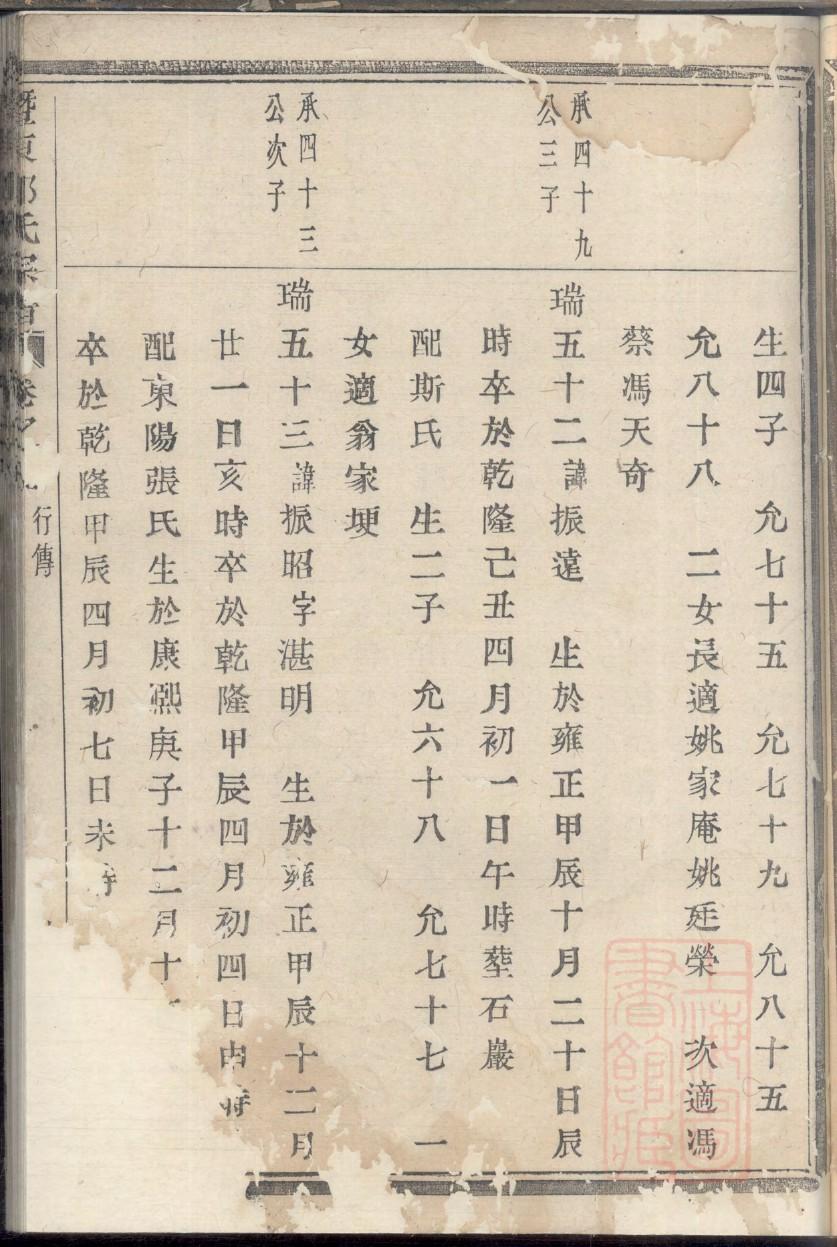 生四子　允七十五　允七十九　允八十五
允八十八　二女長適姚家庵姚廷榮　次適馮
蔡馮天奇
承四十九
公三子
瑞五十二諱振遠　生於雍正甲辰十月二十日辰
時卒於乾隆己丑四月初一日午時塟石巖
配斯氏　生二子　允六十八　允七十七　一
女適翁家埂
承四十三
公次子
瑞五十三諱振昭字湛明　生於雍正甲辰十二月
廿一日亥時卒於乾隆甲辰四月初四日申時
配東陽張氏生於康熙庚子十二月十
卒於乾隆甲辰四月初七日未時
暨東 氏宗 卷之
行傳
上海圖書館藏